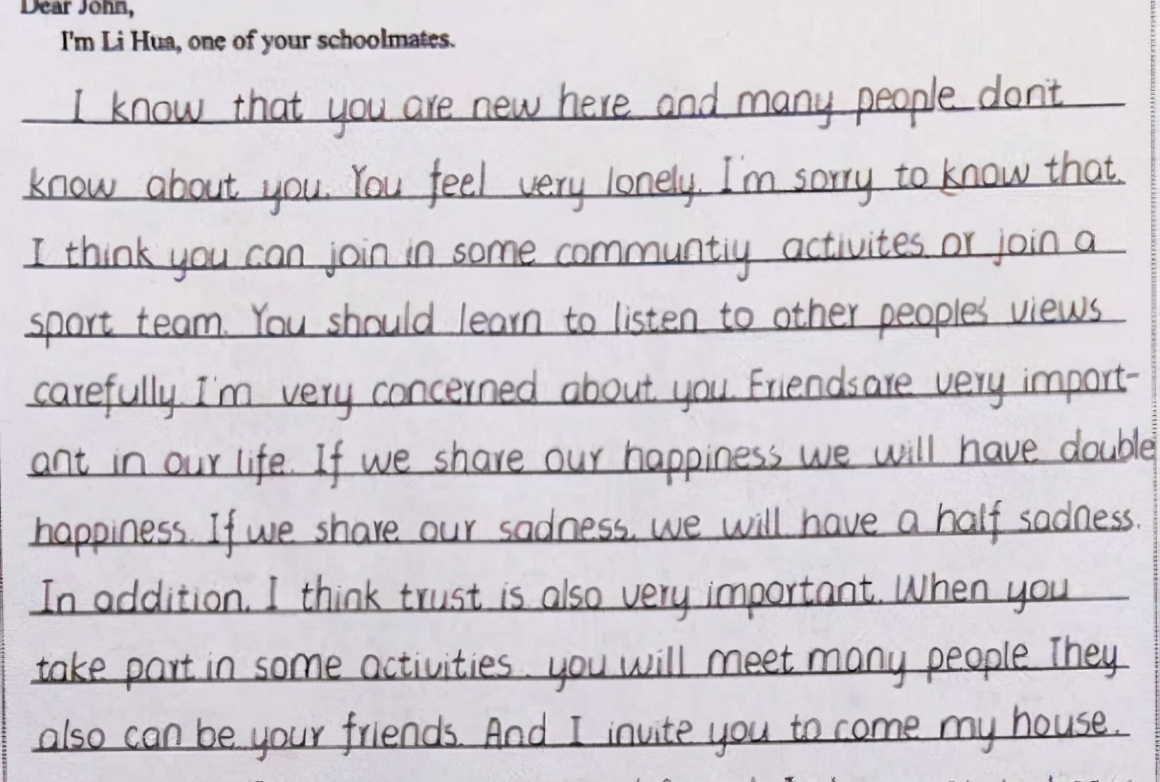 Dear John,
I'm Li Hua, one of your schoolmates.
I know that you are new here and many people don't
know about you. You feel very lonely. I'm sorry to know that.
I think you can join in some communtiy activites or join a
sport team. You should learn to listen to other people's views
carefully. I'm very concerned about you. Friends are very import-
ant in our life. If we share our happiness we will have double
happiness. If we share our sadness, we will have a half sadness.
In addition, I think trust is also very important. When you
take part in some activities, you will meet many people They
also can be your friends. And I invite you to come my house.